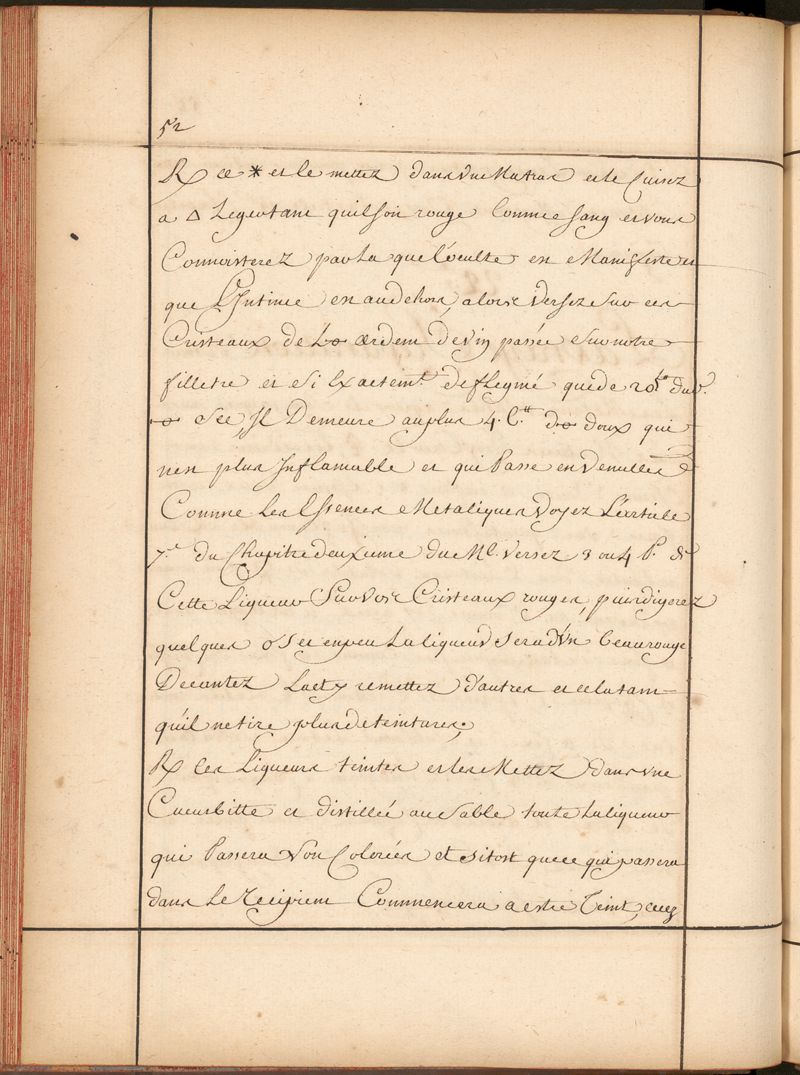 52
℞ ce * et le mettez dans une Matras et le Cuisez
a △ Leger tant quil soit rouge Comme sang et vous
Connoisterez par La que l'oculte en Manifeste et
que L'Intime en au dehors, alors versez sur ces
Cristeaux de ardent de vin passée sur notre
filletre et si Exactem.t deflegmé que de 20 du
sec, Il Demeure au plus 4. doux qui
nen plus Inflamable et qui Passe en
Comme Les Essences Metaliques Voyez L'article
7.e du Chapitre deuxieme du M.l Versez 3 ou 4 P. de
Cette Liqueur Sur vos Cristeaux rouges, puis digerez
quelques et en peu La liqueur sera d'Un beau rouge
Decantez La et y remettez d'autres et cela tant
qu'il ne tire plus de teintures,
℞ Les Liqueurs teintes et les Mettez dans une
Cucurbitte et distillée au sable toute La liqueur
qui Passera Non Colorées et sitost que ce qui passera
dans Le recipient Commencera a estre Teint,